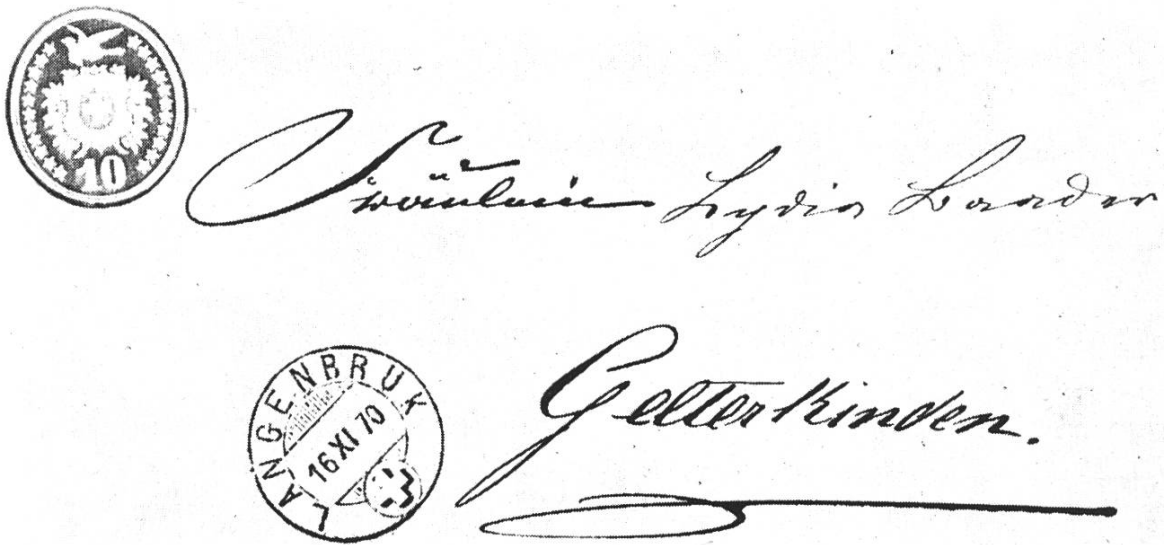 10
Fräulein Lydia Baader
LANGENBRUK
16 XI 70
Gelterkinden.